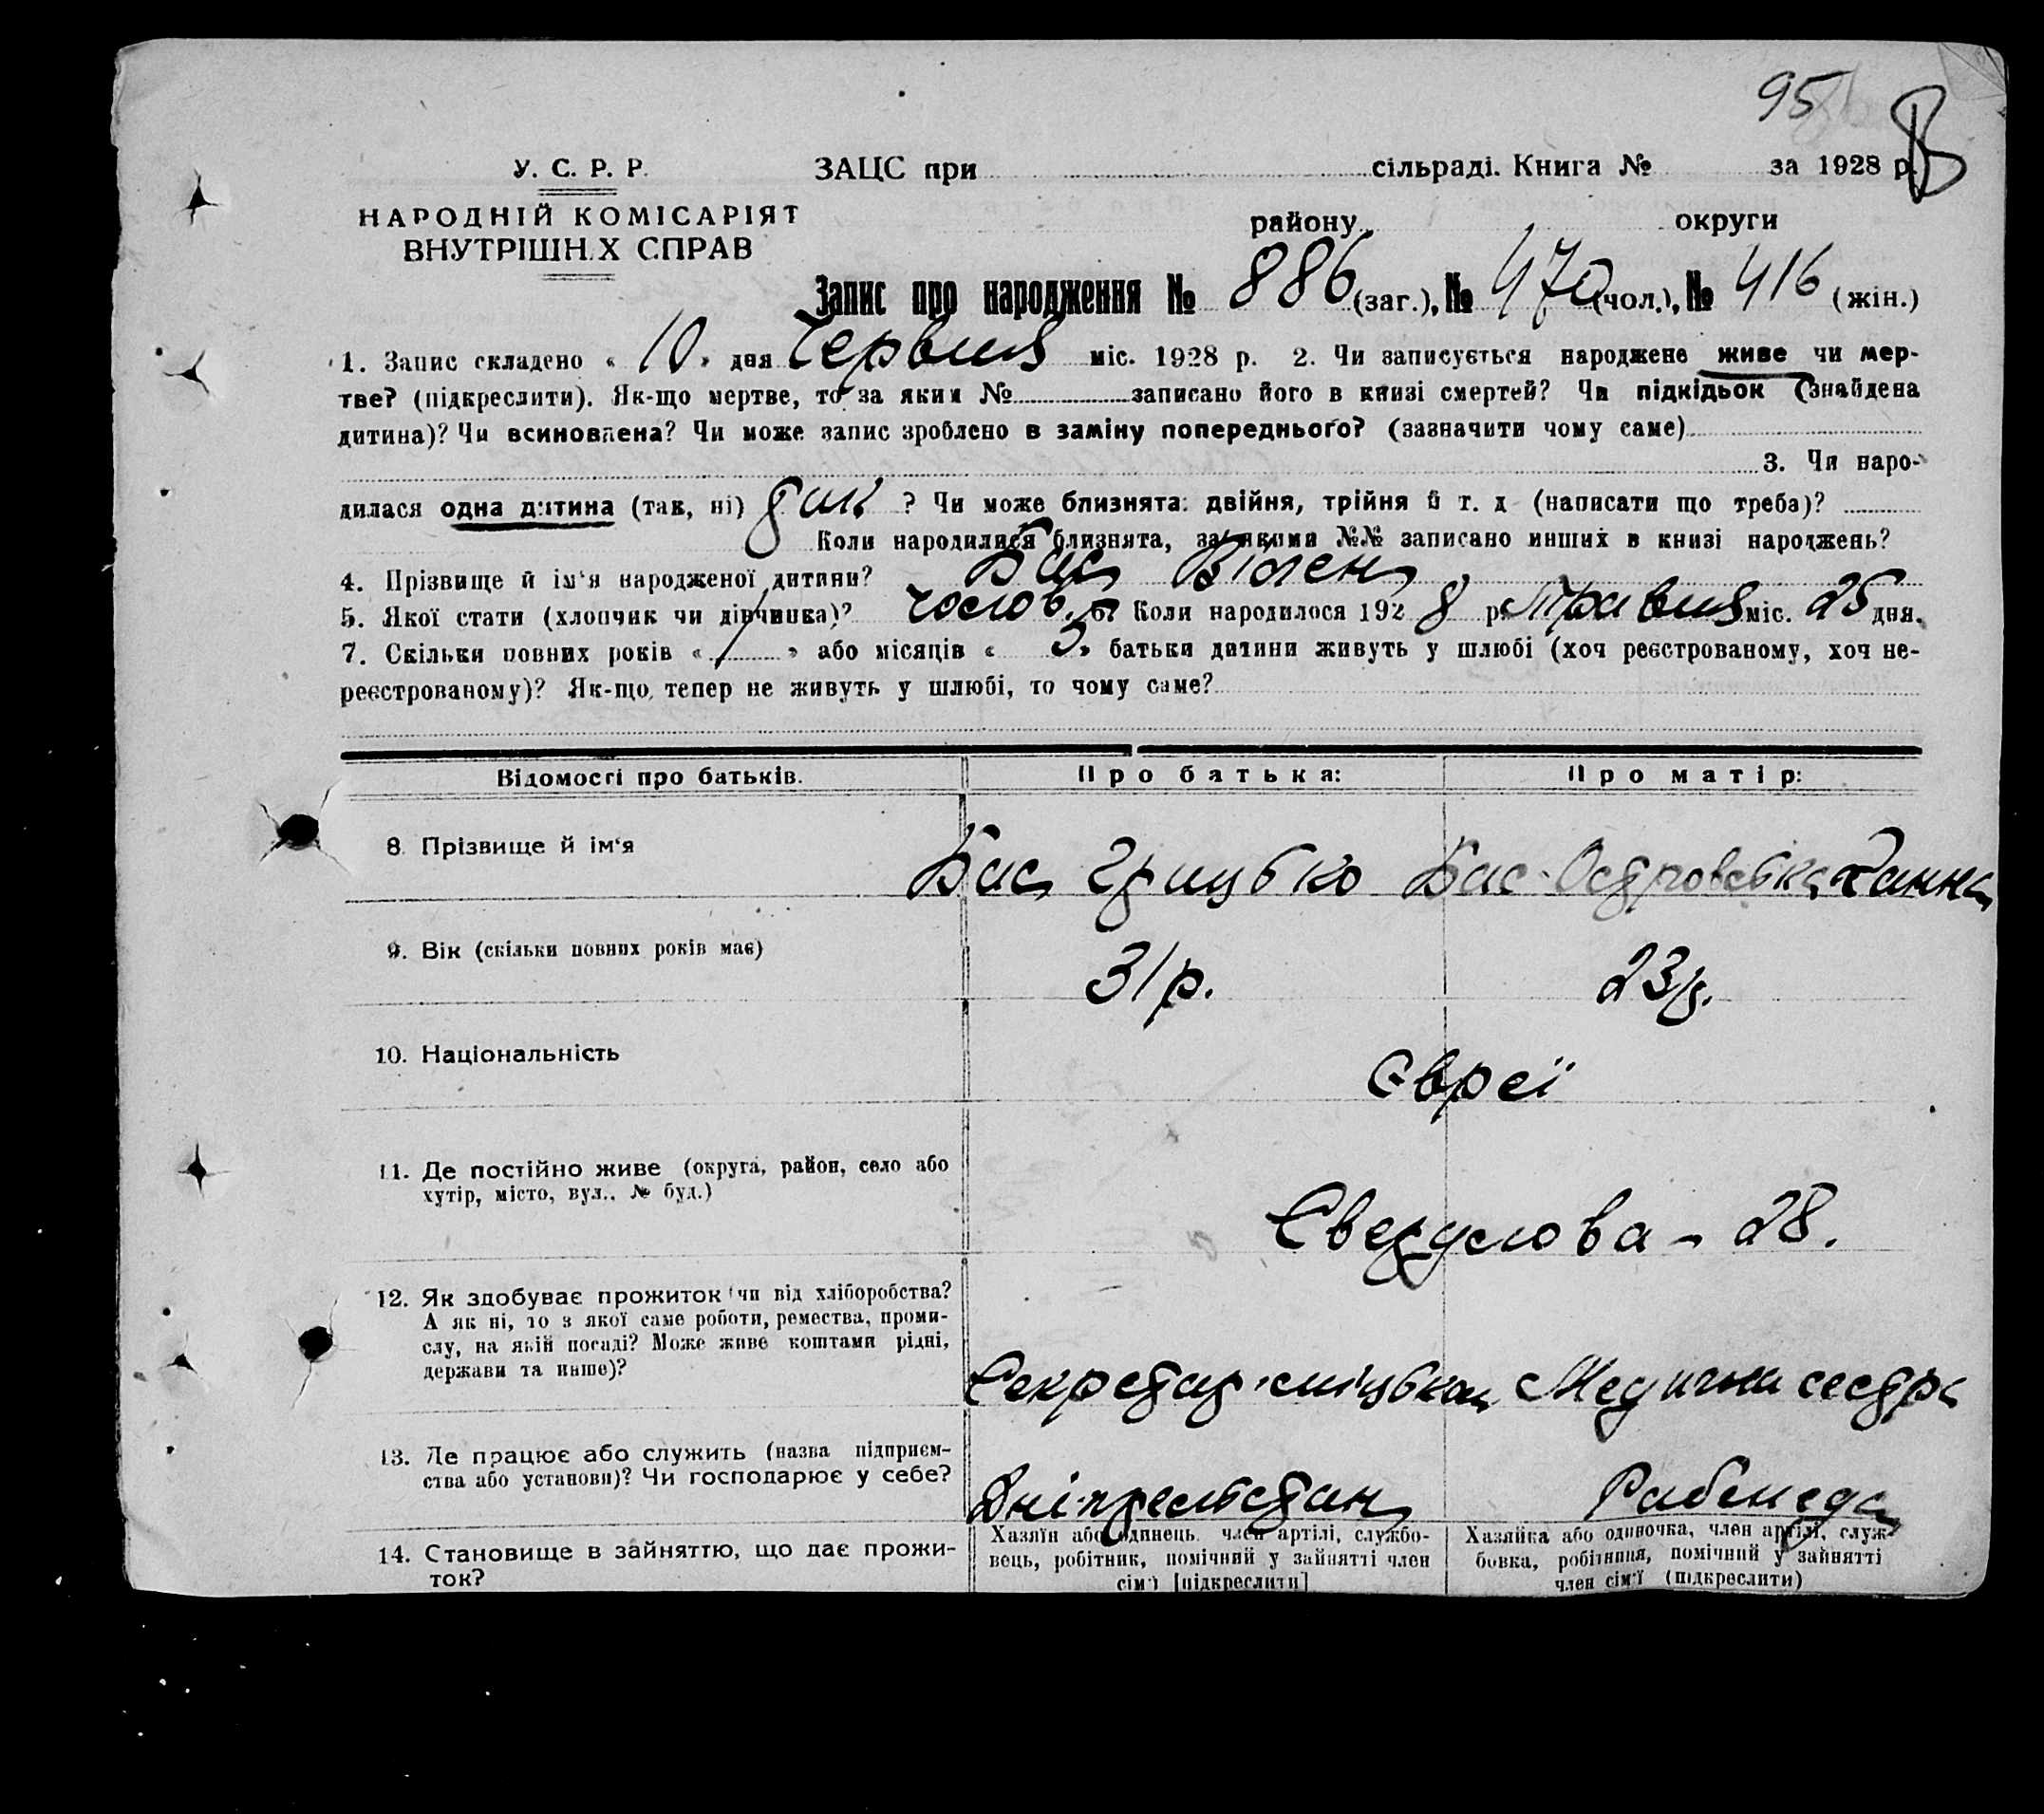 95
В
У. С. Р. Р. ЗАЦС при сільраді. Книга № за 1928 р.
НАРОДНІЙ КОМІСАРІЯТ району округи
ВНУТРІШН.Х СПРАВ
Запис про народження № 886 (заг.), № 470 (чол.), № 416 (жін.)
1. Запис складено « 10 » дня Червня міс. 1928 р. 2. Чи записується народжене живе чи мер-
тве? (підкреслити). Як-що мертве, то за яким № записано його в книзі смертей? Чи підкідьок (знайдена
дитина)? Чи всиновлена? Чи може запис зроблено в заміну попереднього? (зазначити чому саме)
3. Чи наро-
дилася одна дитина (так, ні) ? Чи може близнята: двійня, трійня й т. д (написати що треба)?
Коли народилися близнята, за якими №№ записано инших в книзі народжень?
4. Прізвище й ім'я народженої дитини? Бас Вілен
5. Якої стати (хлопчик чи дівчинка)? чолов. 6. Коли народилося 192 8 р. Травня міс. 25 дня.
7. Скільки повних років « / » або місяців « » батьки дитини живуть у шлюбі (хоч реєстрованому, хоч не-
реєстрованому)? Як-що тепер не живуть у шлюбі, то чому саме?
Відомості про батьків. Про батька: Про матір:
8. Прізвище й ім'я Бас Грицько Бас-Островська Ханна
9. Вік (скільки повних років має) 31 р. 23 р.
10. Національність Євреї
11. Де постійно живе (округа, район, село або
хутір, місто, вул., № буд.)
Свердлова - 28.
12. Як здобуває прожиток (чи від хліборобства?
А як ні, то з якої саме роботи, ремества, проми-
слу, на якій посаді? Може живе коштами рідні,
держави та инше)?
Секретар Медична сестра
13. Де працює або служить (назва підприєм-
ства або установи)? Чи господарює у себе?
Робмеда
14. Становище в зайняттю, що дає прожи-
ток?
Хазяїн або одинець, член артілі, службо-
вець, робітник, помічний у зайнятті член
сім'ї [підкреслити]
Хазяйка або одиночка, член артілі, служ-
бовка, робітниця, помічний у зайнятті
член сім'ї (підкреслити)